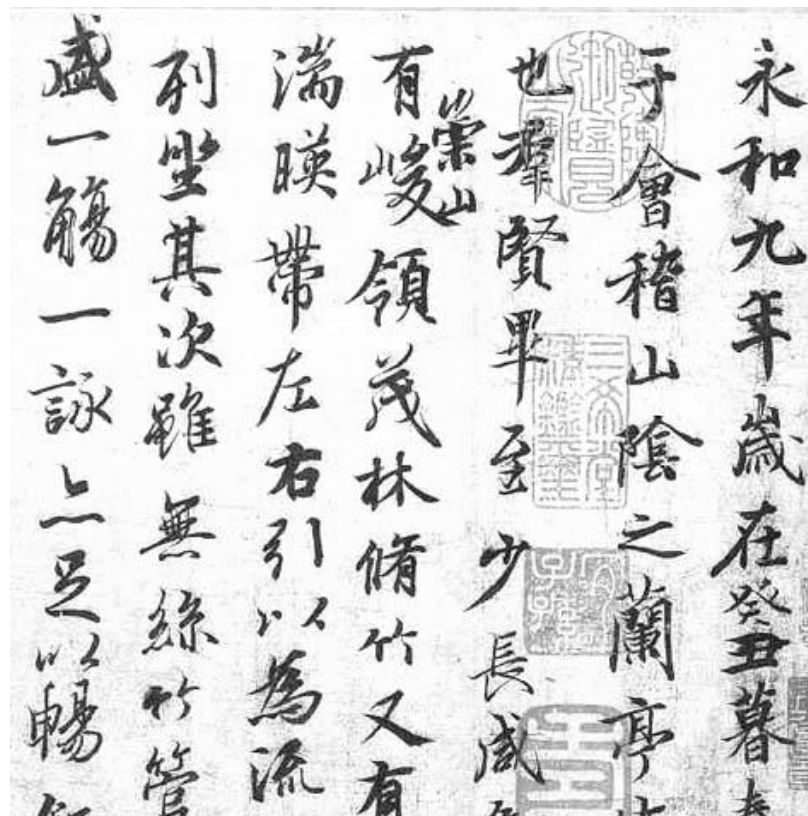 永和九年歲在癸丑暮春
于會稽山陰之蘭亭
也羣賢畢至少長咸
有崇山峻領茂林脩竹又有
湍暎帶左右引以為流
列坐其次雖無絲竹管
盛一觴一詠亦足以暢